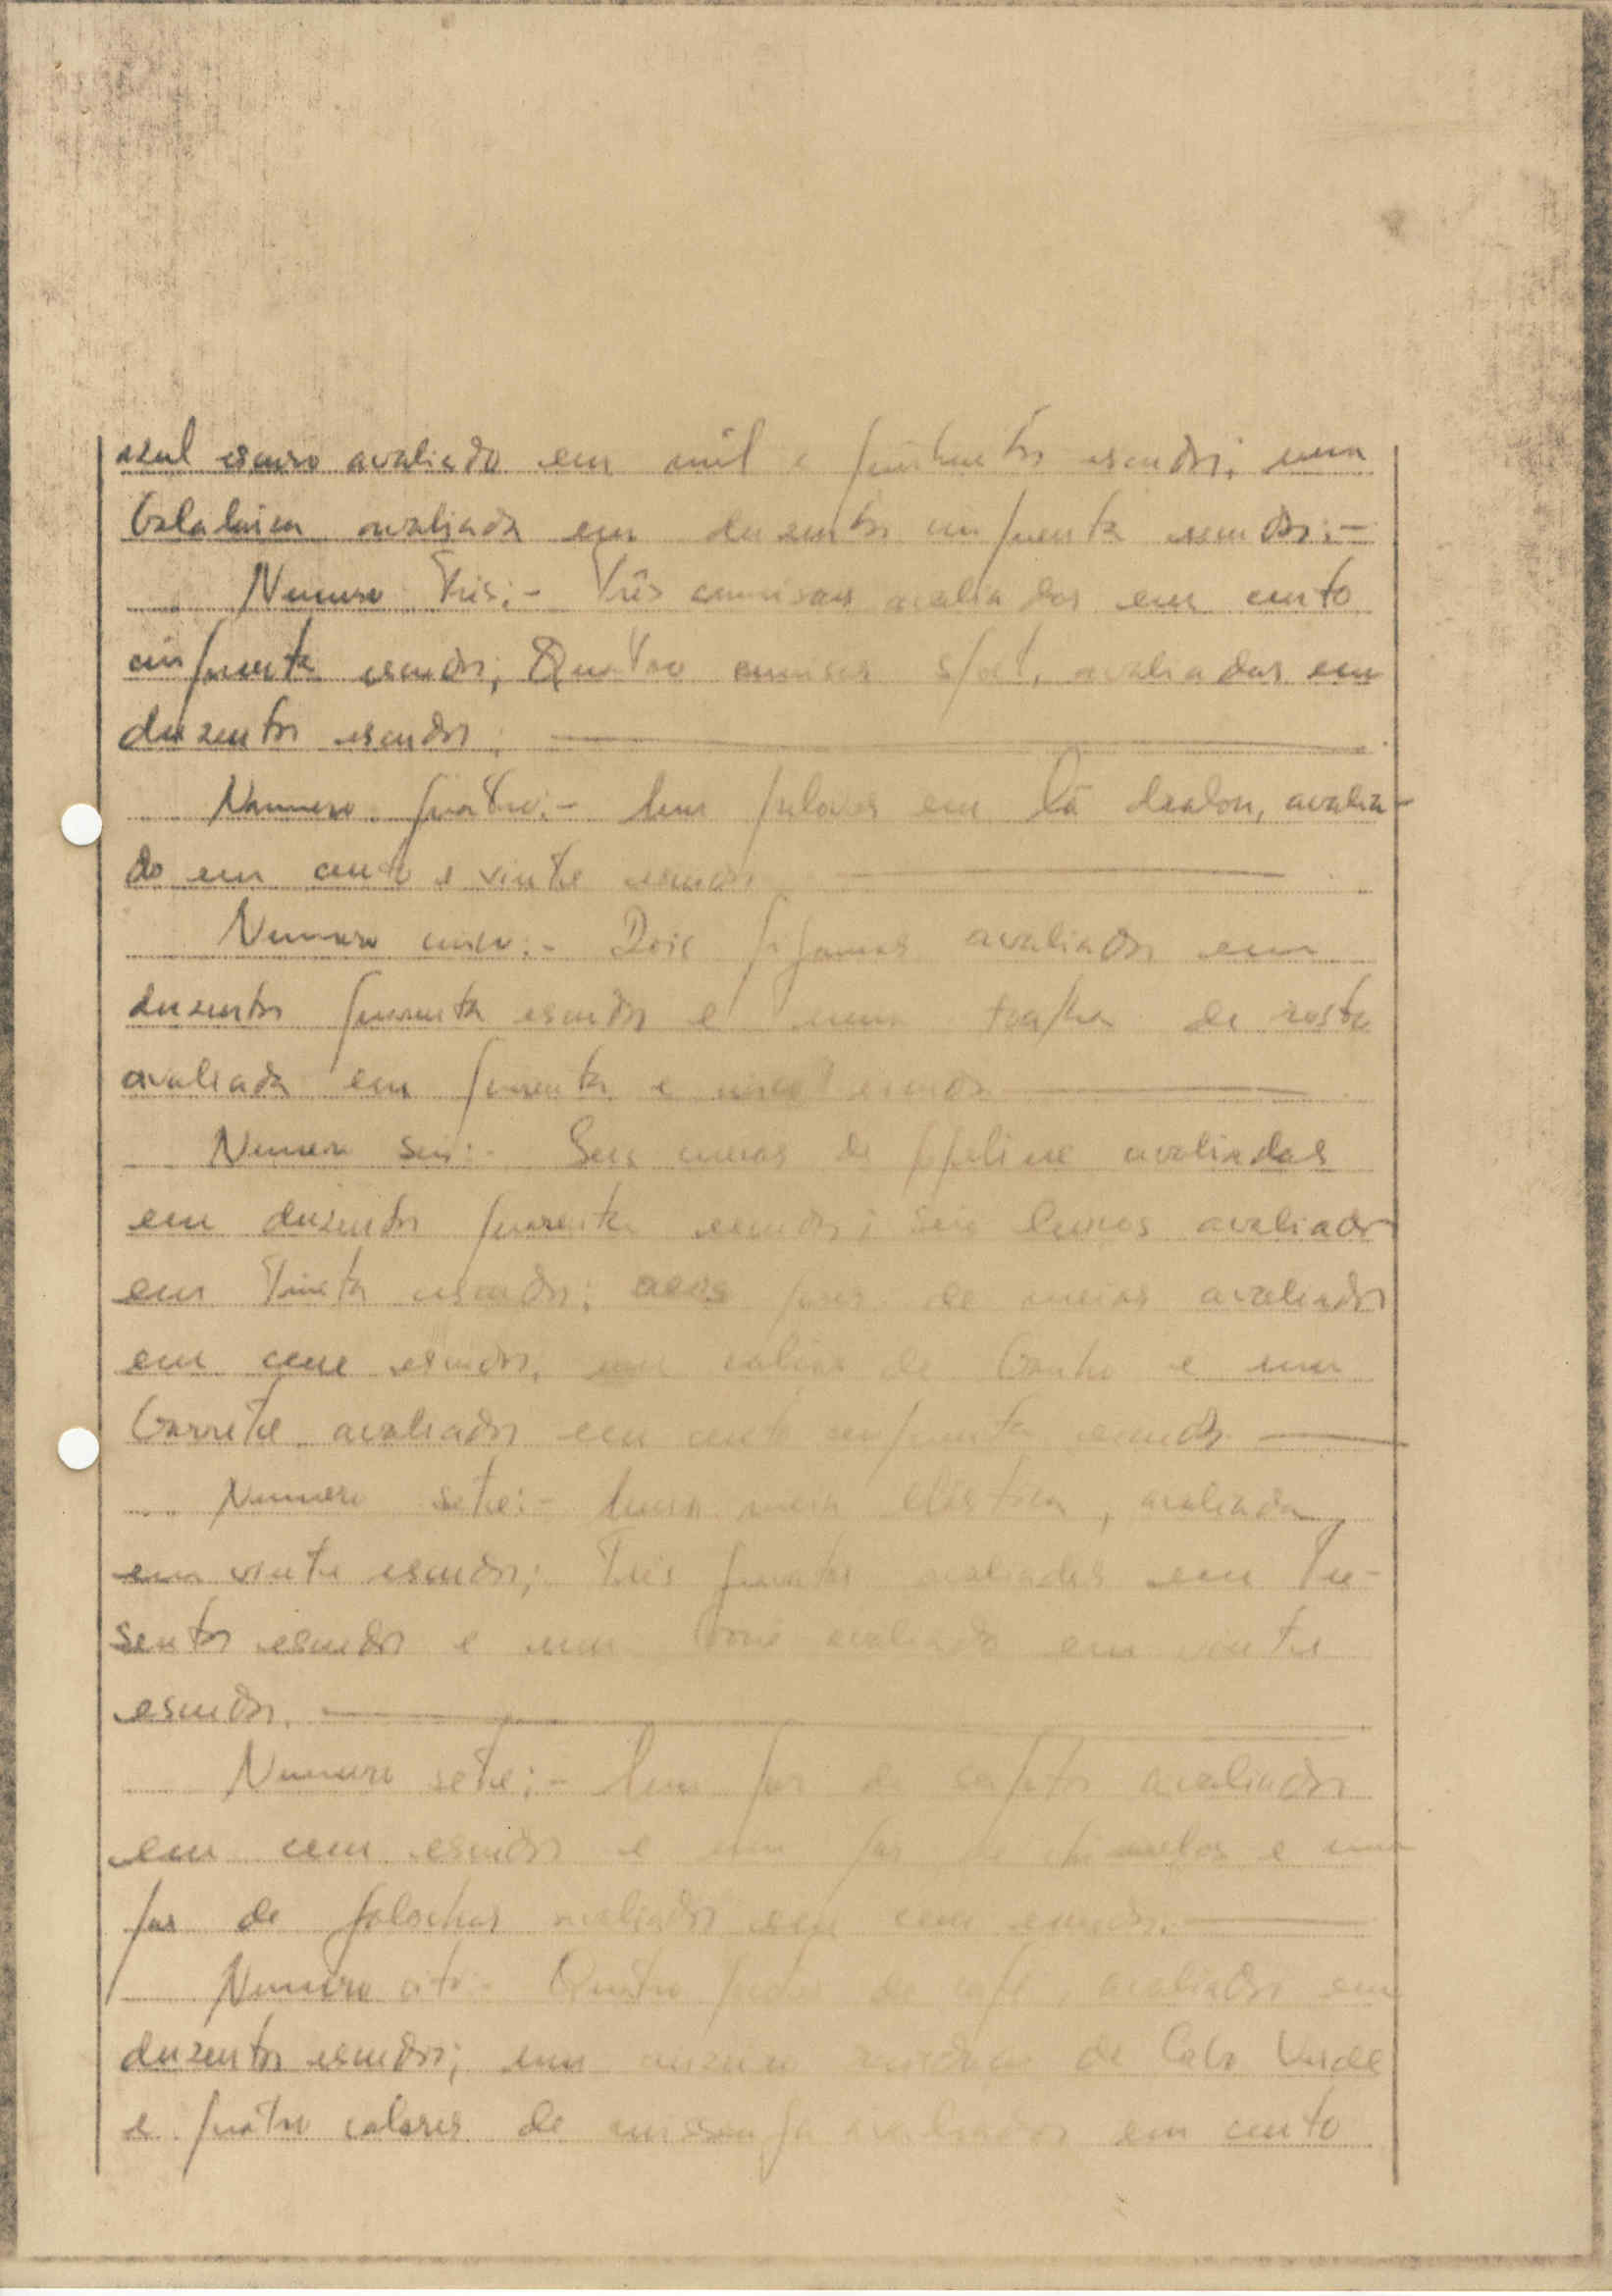 azul escuro avaliado em mil e quinhentos escudos; uma
balalaica avaliada em duzentos cinquenta escudos:-
Numero Três:- Três camisas avaliadas em cento
cinquenta escudos; Quatro camisas avaliadas em
duzentos escudos;
Numero quatro:- Um pulover em lã avalia-
do em cento e vinte escudos
Numero cinco:- Dois pijamas avaliados em
duzentos quarenta escudos e uma toalha de rosto
avaliada em quarenta e escudos
Numero seis:- Seis de popeline avaliadas
em duzentos quarenta escudos; seis lenços avaliados
em Trinta escudos; pares de meias avaliados
em cem escudos; um calção de banho e um
barrete avaliados em cento cinquenta escudos
Numero sete:- Uma meia elástica, avaliada
em vinte escudos; Três avaliadas em Tre-
sentos escudos e um boné avaliado em vinte
escudos.
Numero sete:- Um par de sapatos avaliados
em cem escudos e um par de chinelos e um
par de galochas avaliados em cem escudos.
Numero oito:- Quatro de café, avaliados em
duzentos escudos; um de Cabo Verde
e quatro colares de missanga avaliados em cento